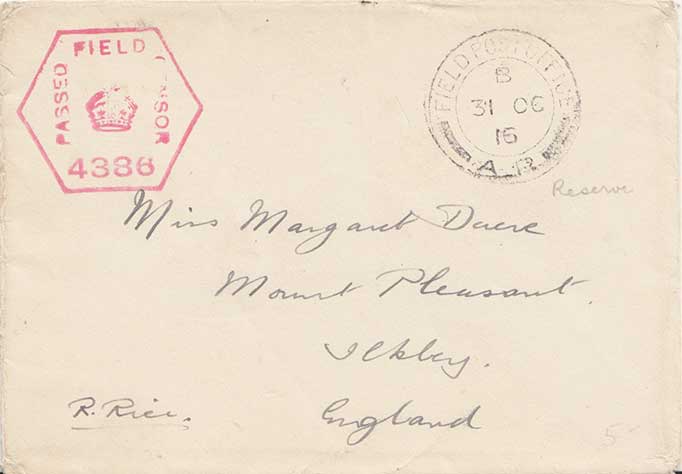 PASSED FIELD CENSOR
4386
FIELD POST OFFICE
B
31 OC
16
A
Reserve
Miss Margaret Dacre
Mount Pleasant.
Ilkley.
England
R. Rice.
5